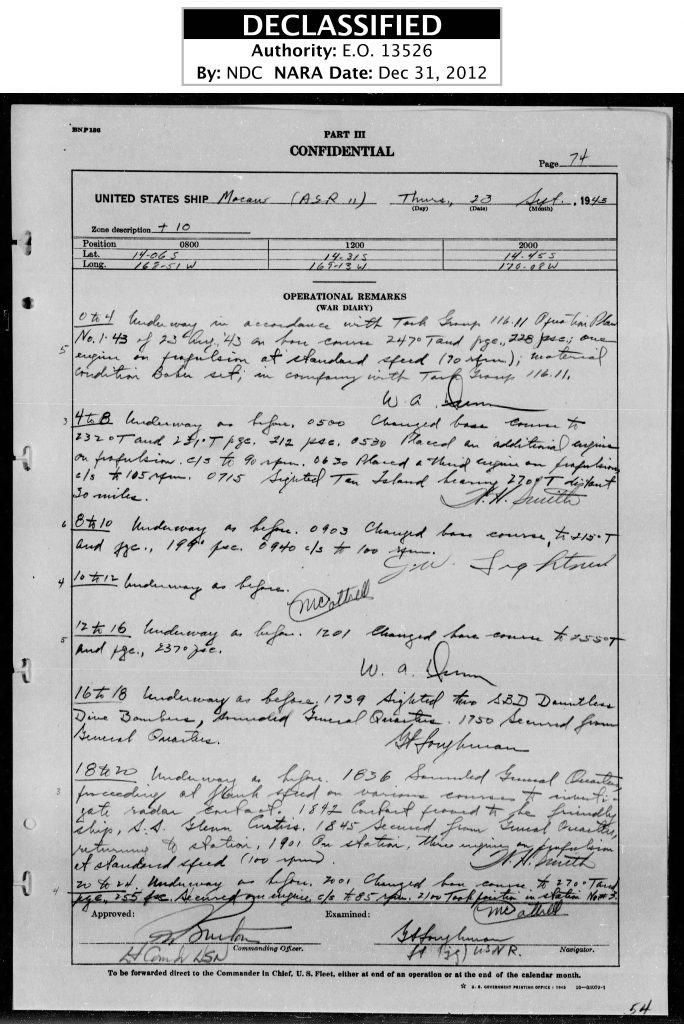 DECLASSIFIED
Authority: E.O. 13526
By: NDC NARA Date: Dec 31, 2012
BNP136
PART III
CONFIDENTIAL
Page 74
UNITED STATES SHIP Macaw (ASR 11) Thurs., 23 Sept., 1943
(Day) (Date) (Month)
Zone description + 10
Position 0800 1200 2000
Lat. 14-06S 14-31S 14-45S
Long. 168-51W 169-13W 170-08W
OPERATIONAL REMARKS
(WAR DIARY)
0 to 4 Underway in accordance with Task Group 116.11 Operation Plan
No. 1-43 of 23 Aug. '43 on base course 247°T and pgc., 228 psc; one
5
engine on propulsion at standard speed (70 rpm); material
condition Baker set; in company with Task Group 116.11.
W. A. Dunn
3
4 to 8 Underway as before. 0500 Changed base course to
232°T and 231°T pgc. 212 psc. 0530 Placed an additional engine
on propulsion. c/s to 90 rpm. 0630 Placed a third engine on propulsion
c/s to 105 rpm. 0715 Sighted Tau Island bearing 270°T distant
30 miles.
W. H. Smith
6
8 to 10 Underway as before. 0903 Changed base course to 215°T
and pgc., 199° psc. 0940 c/s to 100 rpm.
G.W.
4
10 to 12 Underway as before.
McAttrell
5
12 to 16 Underway as before. 1201 Changed base course to 255°T
and pgc., 237° psc.
W. A. Dunn
16 to 18 Underway as before, 1739 Sighted two SBD Dauntless
Dive Bombers, sounded General Quarters. 1750 Secured from
General Quarters.
GH Loughman
3
18 to 20 Underway as before. 1836 Sounded General Quarters
proceeding at flank speed on various courses to investi-
gate radar contact. 1842 Contact proved to be friendly
ship, S.S. Glenn Curtiss. 1845 Secured from General Quarters,
returning to station, 1901 On station, three engines on propulsion
at standard speed (100 rpm).
W. H. Smith
4
20 to 24 Underway as before. 2001 Changed base course to 270°T and
pgc, 255 psc. Secured one engine c/s to 85 rpm. 2100 Took position in station No # 3.
McAttrell
Approved: Examined:
Burton GH Loughman
Commanding Officer. Navigator.
Lt Comdr USN Lt (jg) USNR.
To be forwarded direct to the Commander in Chief, U. S. Fleet, either at end of an operation or at the end of the calendar month.
U. S. GOVERNMENT PRINTING OFFICE : 1943
54